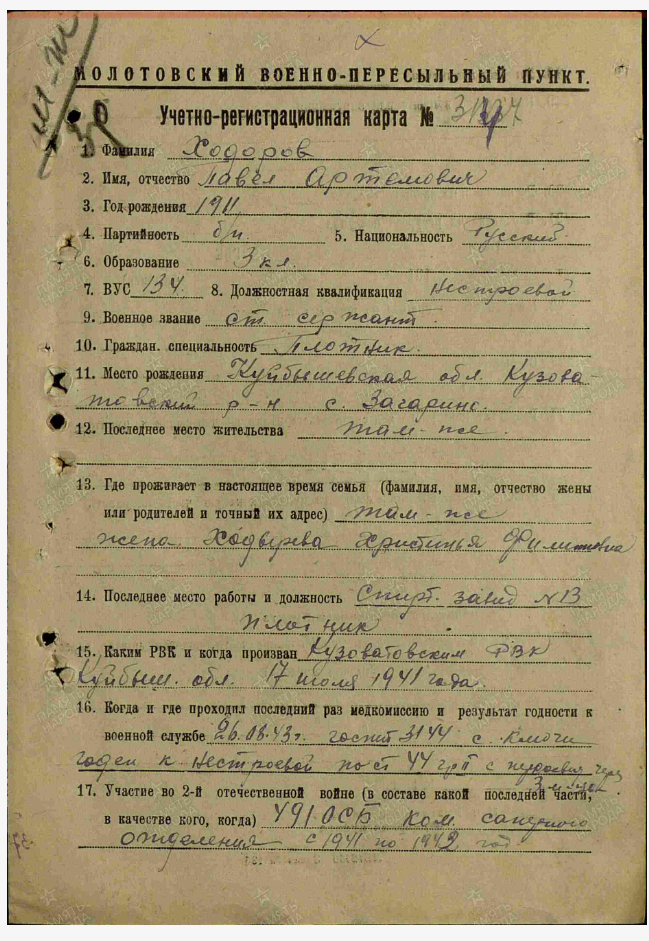 МОЛОТОВСКИЙ ВОЕННО-ПЕРЕСЫЛЬНЫЙ ПУНКТ.
Учетно-регистрационная карта №
1. Фамилия Ходоров
2. Имя, отчество Павел Артемович
3. Год рождения 1911
4. Партийность б/п 5. Национальность Русский
6. Образование 3 кл.
7. ВУС 134 8. Должностная квалификация нестроевой
9. Военное звание ст сержант.
10. Граждан. специальность Плотник.
11. Место рождения Куйбышевская обл. Кузова-
товский р-н с. Загарино.
12. Последнее место жительства там-же.
13. Где проживает в настоящее время семья (фамилия, имя, отчество жены
или родителей и точный их адрес) там-же
жена Христинья Филиповна
14. Последнее место работы и должность Спирт. завод № 13
плотник
15. Каким РВК и когда призван Кузоватовским РВК
Куйбыш. обл. 17 июля 1941 года.
16. Когда и где проходил последний раз медкомиссию и результат годности к
военной службе 26.08.43г. госпит 3144 с. Ключи
годен к нестроевой по ст 44 гр II с через
17. Участие во 2-й отечественной войне (в составе какой последней части,
в качестве кого, когда) 491 ОСБ ком.
отделения с 1941 по 1942 год